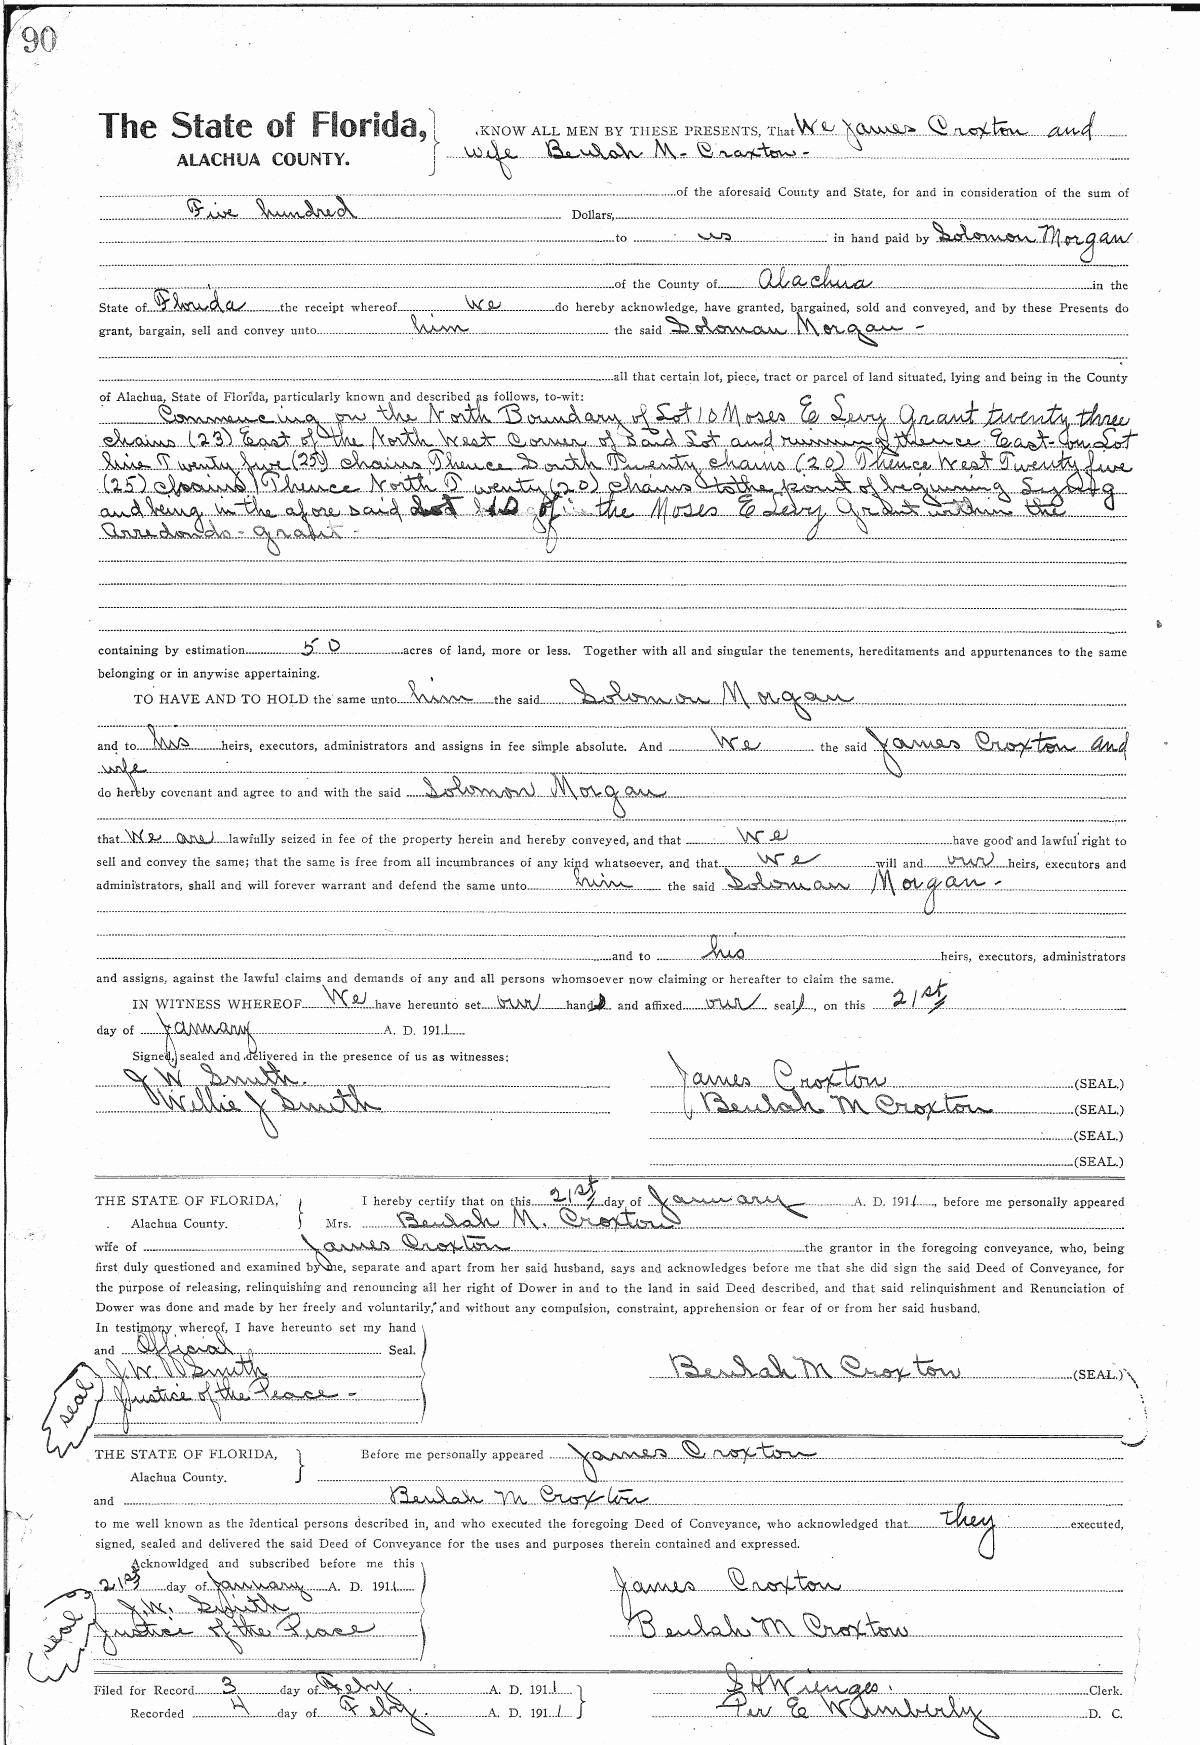 90
The State of Florida,
ALACHUA COUNTY.
KNOW ALL MEN BY THESE PRESENTS, That We James Croxton and
wife Beulah M- Craxton-
of the aforesaid County and State, for and in consideration of the sum of
Five hundred Dollars,
to us in hand paid by Solomon Morgan
of the County of Alachua in the
State of Florida the receipt whereof We do hereby acknowledge, have granted, bargained, sold and conveyed, and by these Presents do
grant, bargain, sell and convey unto him the said Soloman Morgan -
all that certain lot, piece, tract or parcel of land situated, lying and being in the County
of Alachua, State of Florida, particularly known and described as follows, to-wit:
Commencing on the North Boundary of Lot 10 Moses E Levy Grant twenty three
chains (23) East of the North West Corner of Said Lot and running thence East on Lot
line Twenty five (25) chains Thence South Twenty chains (20) Thence West Twenty five
(25) chains Thence North Twenty (20) chains to the point of beginning Lying
and being in the afore said Lot 10 of the Moses E Levy Grant within the
Arredondo- grant-
containing by estimation 50 acres of land, more or less. Together with all and singular the tenements, hereditaments and appurtenances to the same
belonging or in anywise appertaining.
TO HAVE AND TO HOLD the same unto him the said Solomon Morgan
and to his heirs, executors, administrators and assigns in fee simple absolute. And We the said James Croxton and
wife
do hereby covenant and agree to and with the said Solomon Morgan
that We are lawfully seized in fee of the property herein and hereby conveyed, and that We have good and lawful right to
sell and convey the same; that the same is free from all incumbrances of any kind whatsoever, and that We will and our heirs, executors and
administrators, shall and will forever warrant and defend the same unto him the said Soloman Morgan-
and to his heirs, executors, administrators
and assigns, against the lawful claims and demands of any and all persons whomsoever now claiming or hereafter to claim the same.
IN WITNESS WHEREOF We have hereunto set our hands and affixed our seal, on this 21st
day of January A. D. 1911
Signed, sealed and delivered in the presence of us as witnesses:
J W Smith. James Croxton (SEAL.)
Willie J Smith Beulah M Croxton (SEAL.)
(SEAL.)
(SEAL.)
THE STATE OF FLORIDA, I hereby certify that on this 21st day of January A. D. 1911, before me personally appeared
Alachua County. Mrs. Beulah M. Croxton
wife of James Croxton the grantor in the foregoing conveyance, who, being
first duly questioned and examined by me, separate and apart from her said husband, says and acknowledges before me that she did sign the said Deed of Conveyance, for
the purpose of releasing, relinquishing and renouncing all her right of Dower in and to the land in said Deed described, and that said relinquishment and Renunciation of
Dower was done and made by her freely and voluntarily, and without any compulsion, constraint, apprehension or fear of or from her said husband.
In testimony whereof, I have hereunto set my hand
and Official Seal.
J.W. Smith Beulah M Croxton (SEAL.)
Justice of the Peace -
seal
THE STATE OF FLORIDA, Before me personally appeared James Croxton
Alachua County.
and Beulah M Croxton
to me well known as the identical persons described in, and who executed the foregoing Deed of Conveyance, who acknowledged that they executed,
signed, sealed and delivered the said Deed of Conveyance for the uses and purposes therein contained and expressed.
Acknowldged and subscribed before me this
21st day of January A. D. 1911 James Croxton
J.W. Smith
Justice of the Peace Beulah M Croxton
seal
Filed for Record 3 day of Feby. A. D. 1911 S H Wienges. Clerk.
Recorded 4 day of Feby. A. D. 1911 Per E Wimberly D. C.